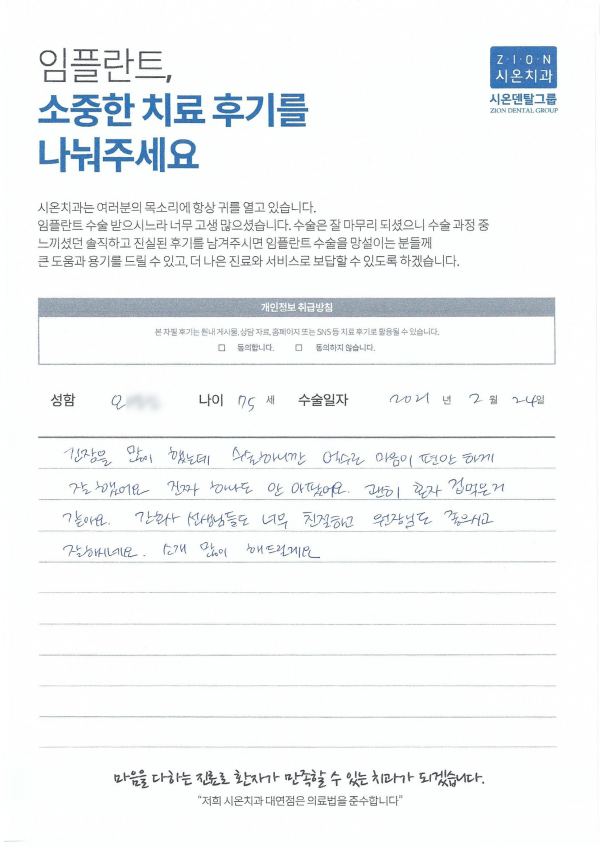 임플란트,
소중한 치료 후기를
나눠주세요
Z·I·O·N
시온치과
시온덴탈그룹
ZION DENTAL GROUP
시온치과는 여러분의 목소리에 항상 귀를 열고 있습니다.
임플란트 수술 받으시느라 너무 고생 많으셨습니다. 수술은 잘 마무리 되셨으니 수술 과정 중
느끼셨던 솔직하고 진실된 후기를 남겨주시면 임플란트 수술을 망설이는 분들께
큰 도움과 용기를 드릴 수 있고, 더 나은 진료와 서비스로 보답할 수 있도록 하겠습니다.
개인정보 취급방침
본 자필 후기는 원내 게시물, 상담 자료, 홈페이지 또는 SNS 등 치료 후기로 활용될 수 있습니다.
☐ 동의합니다. ☐ 동의하지 않습니다.
성함 오 나이 75 세 수술일자 2021 년 2 월 24일
긴장을 많이 했는데 수술하니깐 마음이 편안 하게
잘 했어요 진짜 하나도 안 아팠어요. 괜히 혼자 겁먹은거
같아요. 간호사 선생님들도 너무 친절하고 원장님도 좋으시고
잘하시네요. 소개 많이 해드릴게요
마음을 다하는 진료로 환자가 만족할 수 있는 치과가 되겠습니다.
"저희 시온치과 대연점은 의료법을 준수합니다"